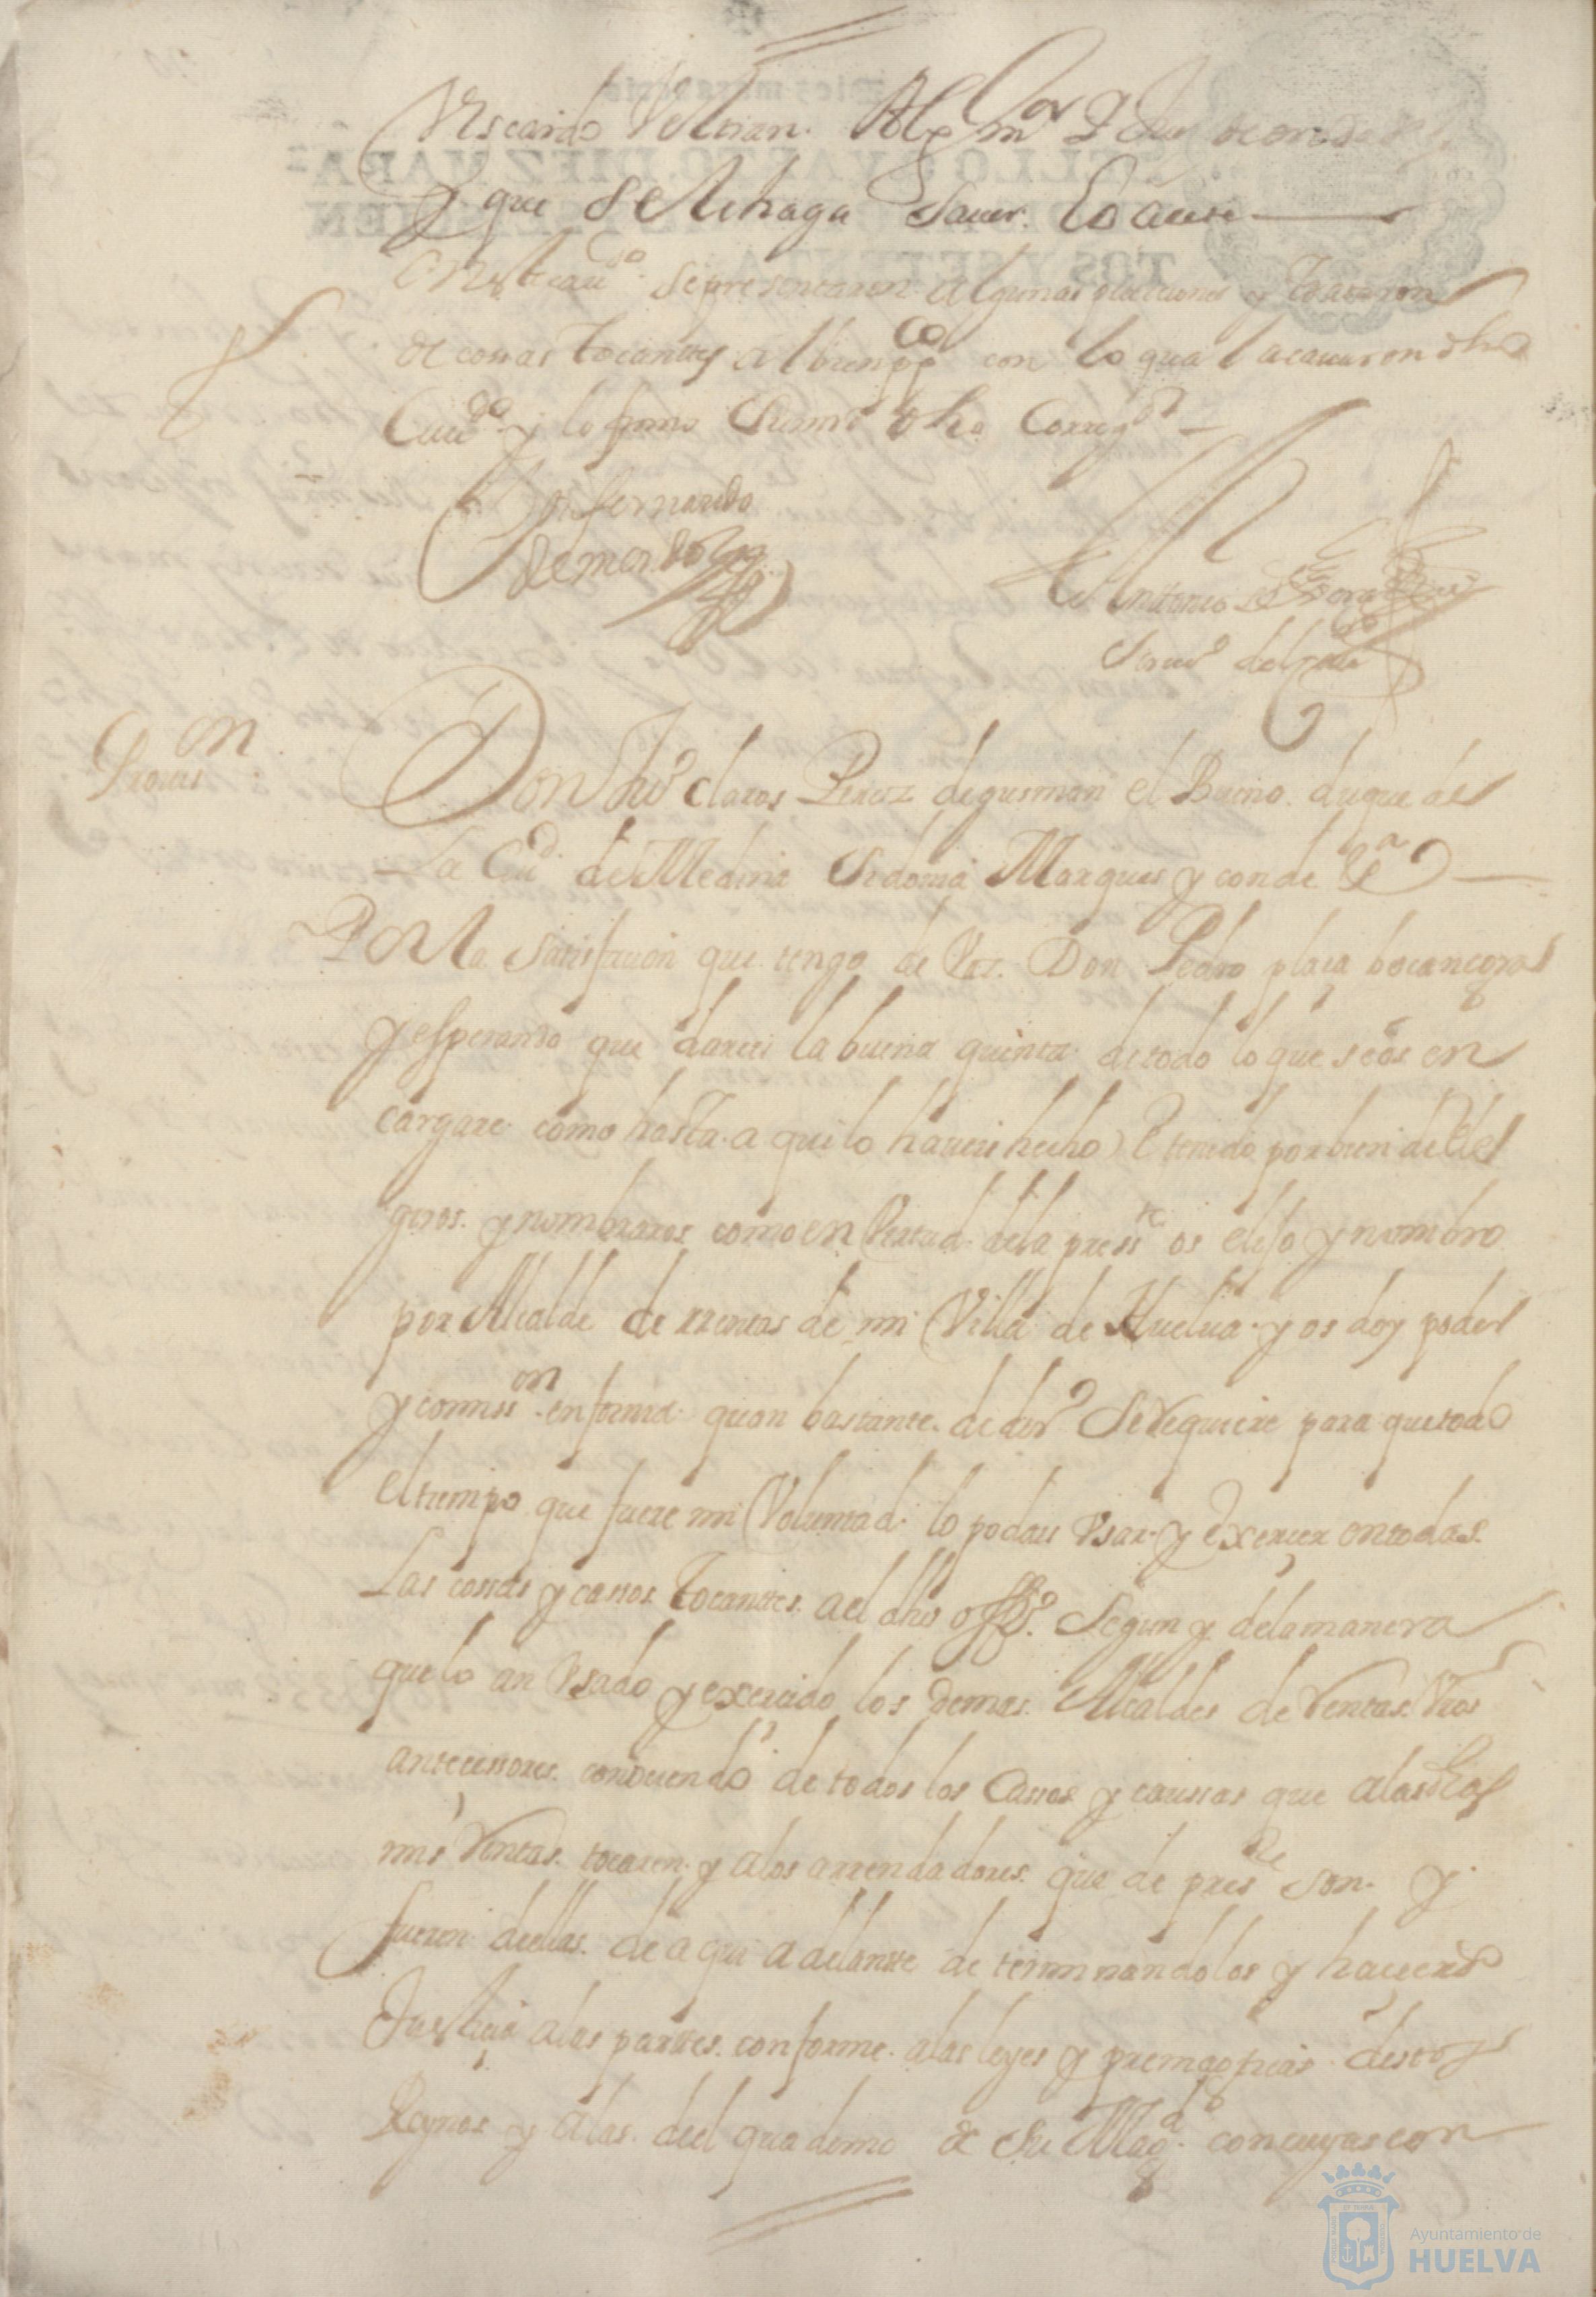 que se le haga saver lo acete
En este cavdo. se presentaron algunas peticiones y trataron
de cossas tocantes al bien puco con lo qual acavaron dho
Cavdo. y lo firmo Su md. dho Corregor
Don fernando
de
Antonio de
Scrivo. del cavdo
Provision
Don Juo claros Perez de gusman el Bueno duque de
La Ciud. de Medina Sidonia Marques y conde &a
Por la satisfacion que tengo de Vos Don Pedro plaça bocanegra
y esperando que dareis la buena quenta de todo lo que se os en
cargare como hasta aqui lo haveis hecho E tenido por bien de ele
giros y nombraros como en Virtud de la presste os elijo y nombro
por Alcalde de rrentas de mi Villa de Huelva y os doy poder
y comisson en forma quan bastante de dro Se requiere para que todo
el tiempo que fuere mi Voluntad lo podais Vsar y Exercer en todas
Las cossas y cassos Tocantes a el dho offo. Segun y de la manera
que lo an Vsado y exercido los demas Alcaldes de Rentas Vros
antecessores conociendo de todos los Cassos y caussas que a las dhas
mis Rentas tocaren y a los arrendadores que de preste son y
fueren dellas de aqui adelante determinandolos y haciendo
Justicia a las partes conforme a las leyes y prematicas destos
Reynos y a las del quaderno de Su Magd. con cuyas con
Ayuntamiento de
HUELVA